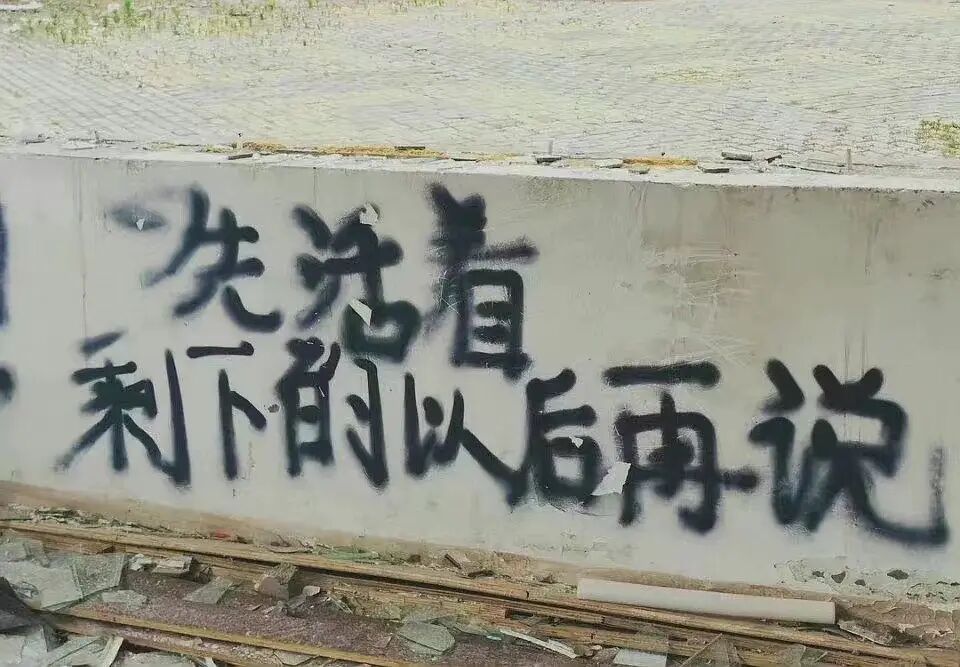 先活着
剩下的以后再说